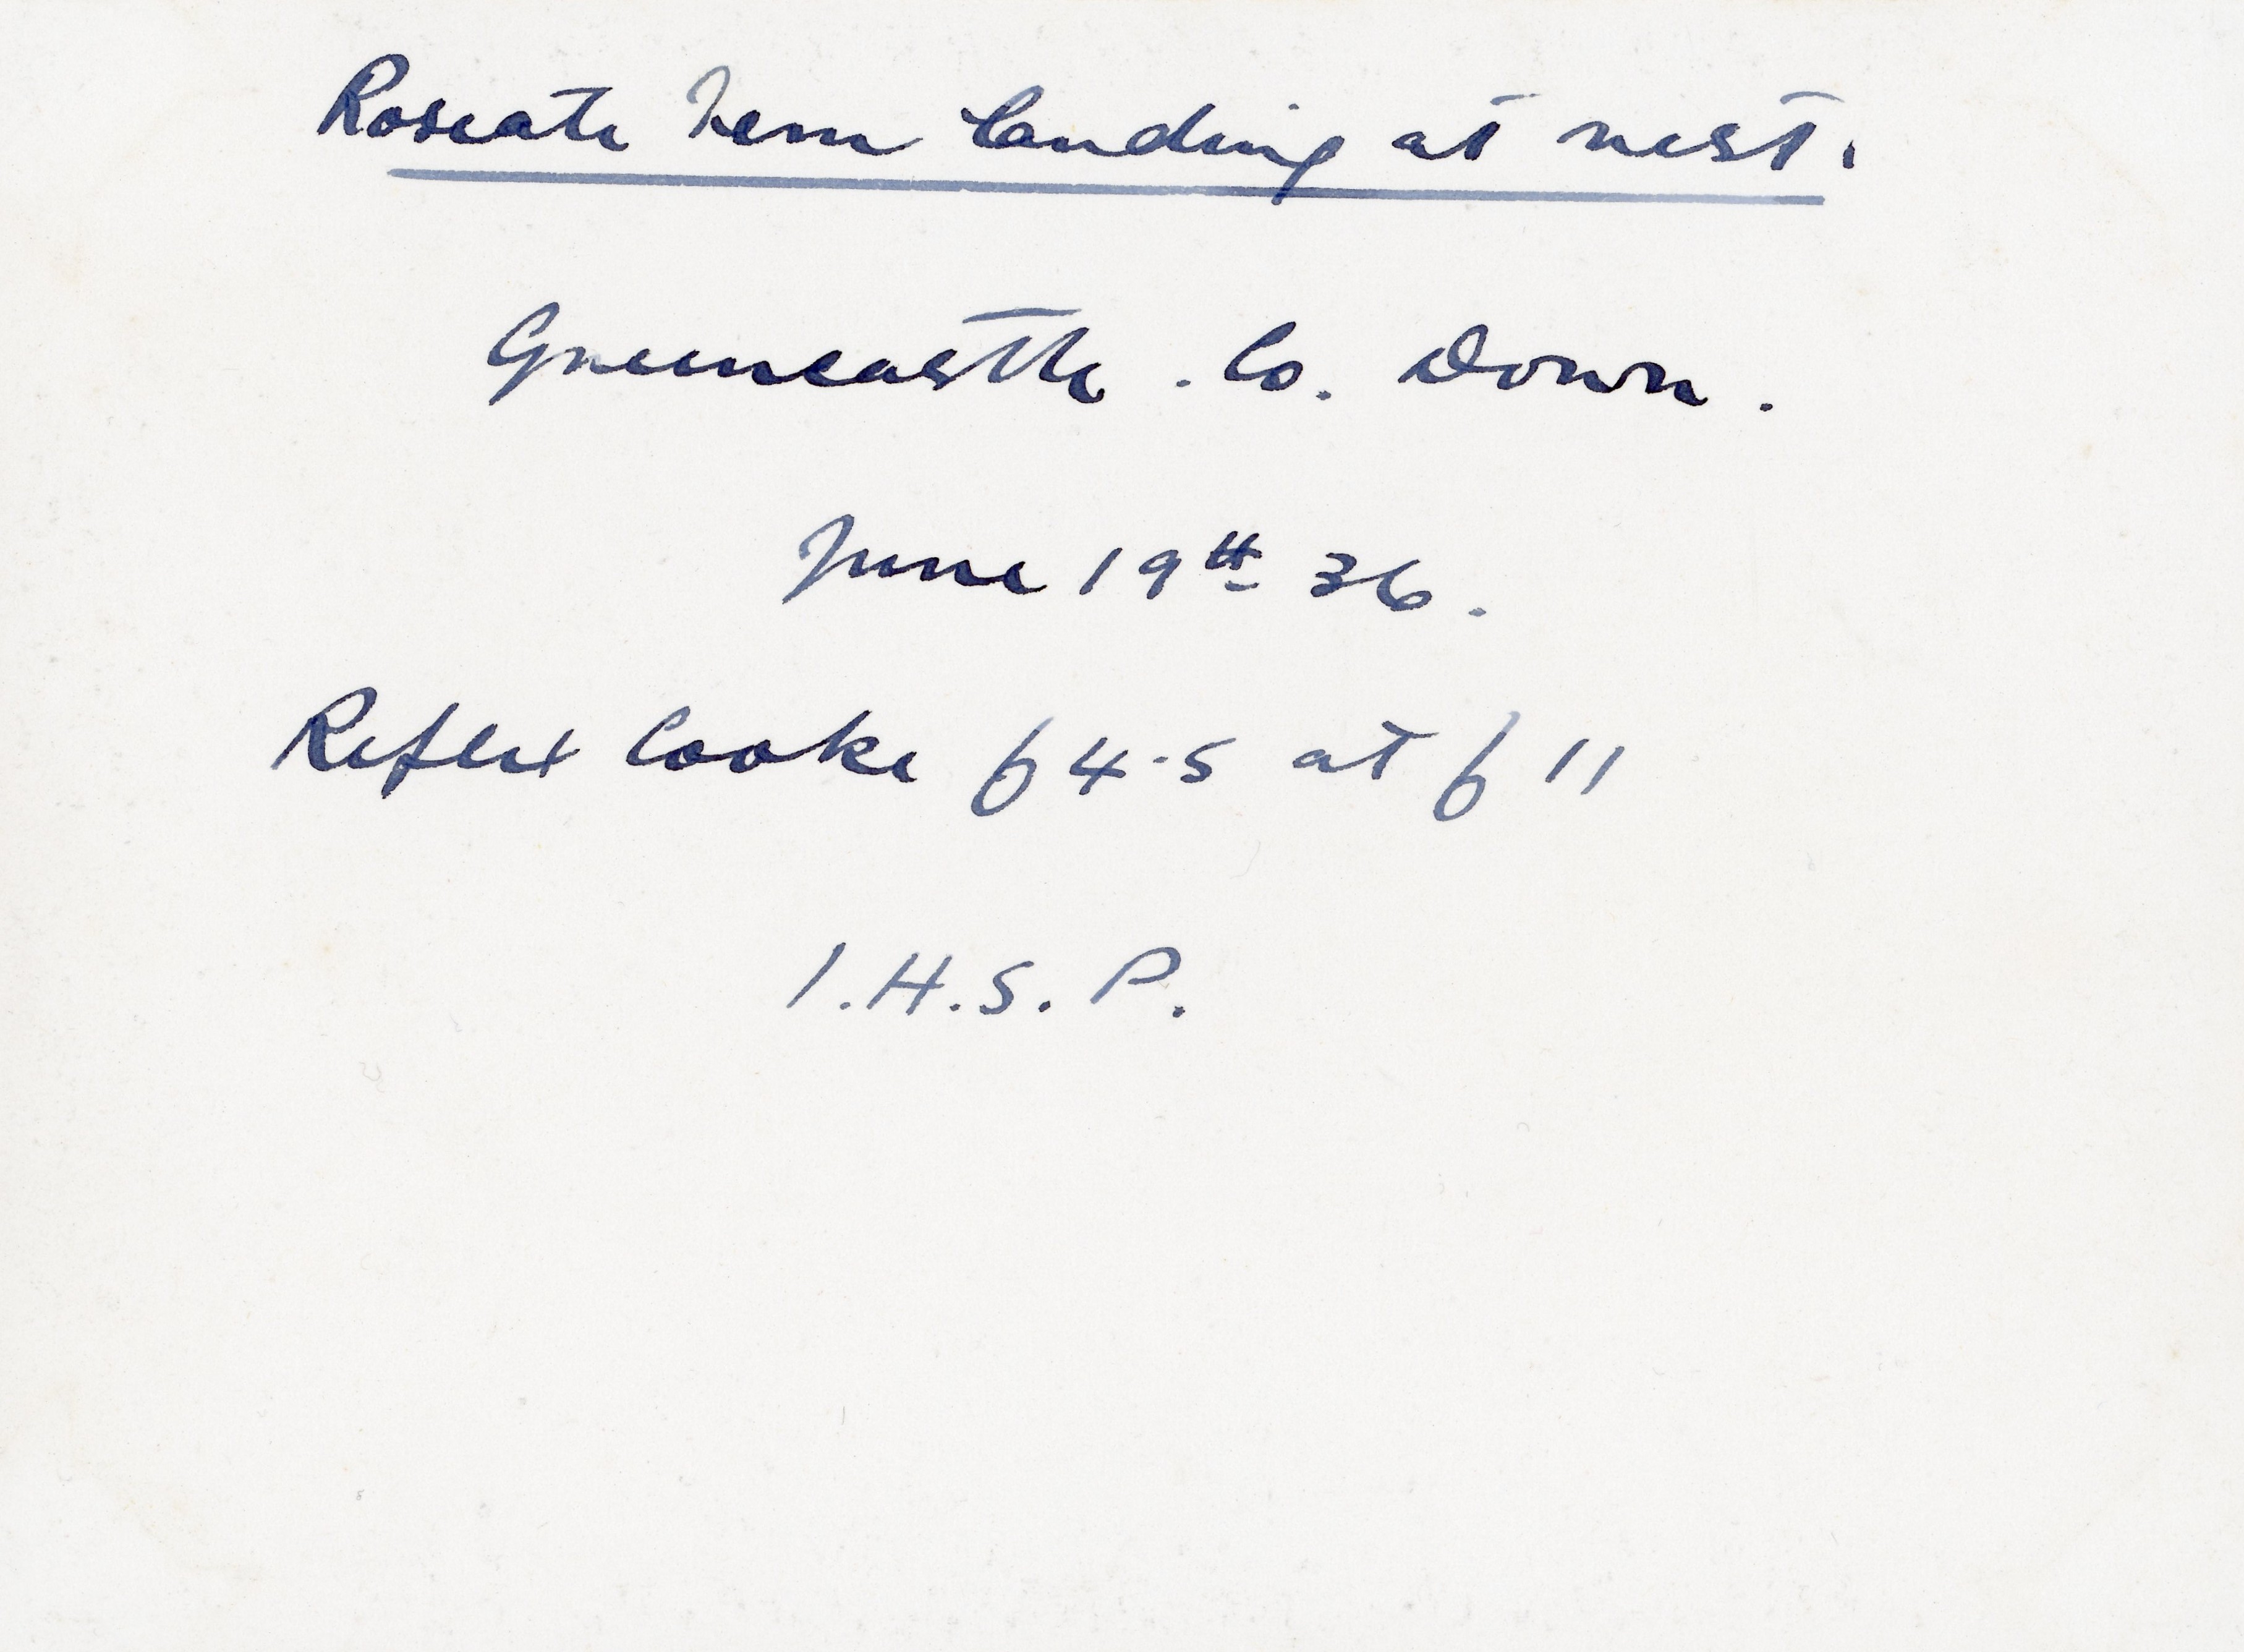 Roseate Tern landing at nest.
Greencastle. Co. Down.
June 19th 36.
Reflex Cooke f 4.5 at f 11
I.H.S.P.